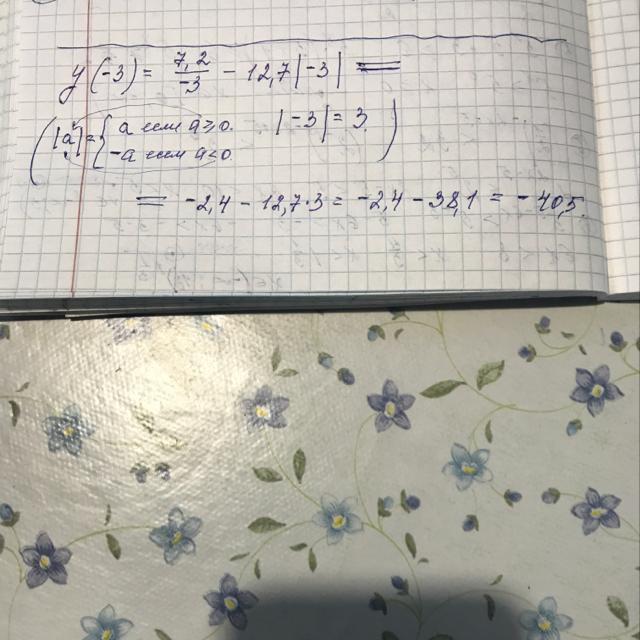 y(-3) = 7,2/-3 - 12,7|-3| =
(|a| = { a если a ≥ 0. |-3| = 3. )
-a если a < 0.
= -2,4 - 12,7·3 = -2,4 - 38,1 = -40,5.